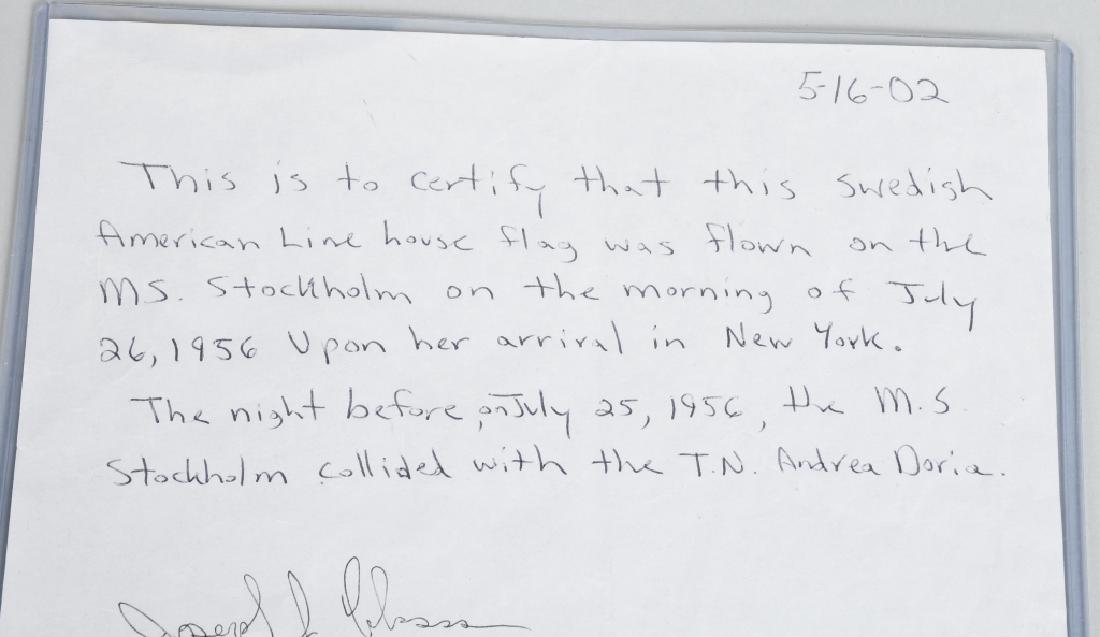 5-16-02
This is to certify that this Swedish
American Line house flag was flown on the
MS. Stockholm on the morning of July
26, 1956 Upon her arrival in New York.
The night before, on July 25, 1956, the M.S.
Stockholm collided with the T.N. Andrea Doria.
Joseph